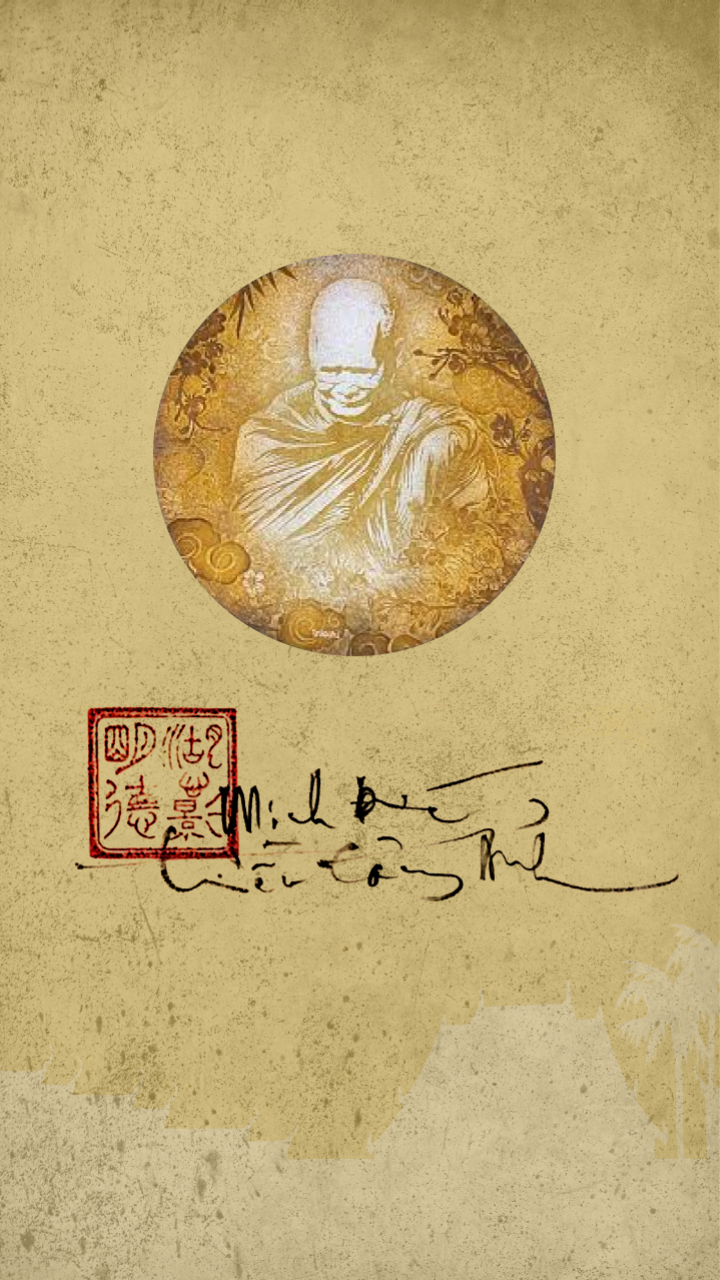 明湖
德影
Minh Đức
Triều Tâm Ảnh